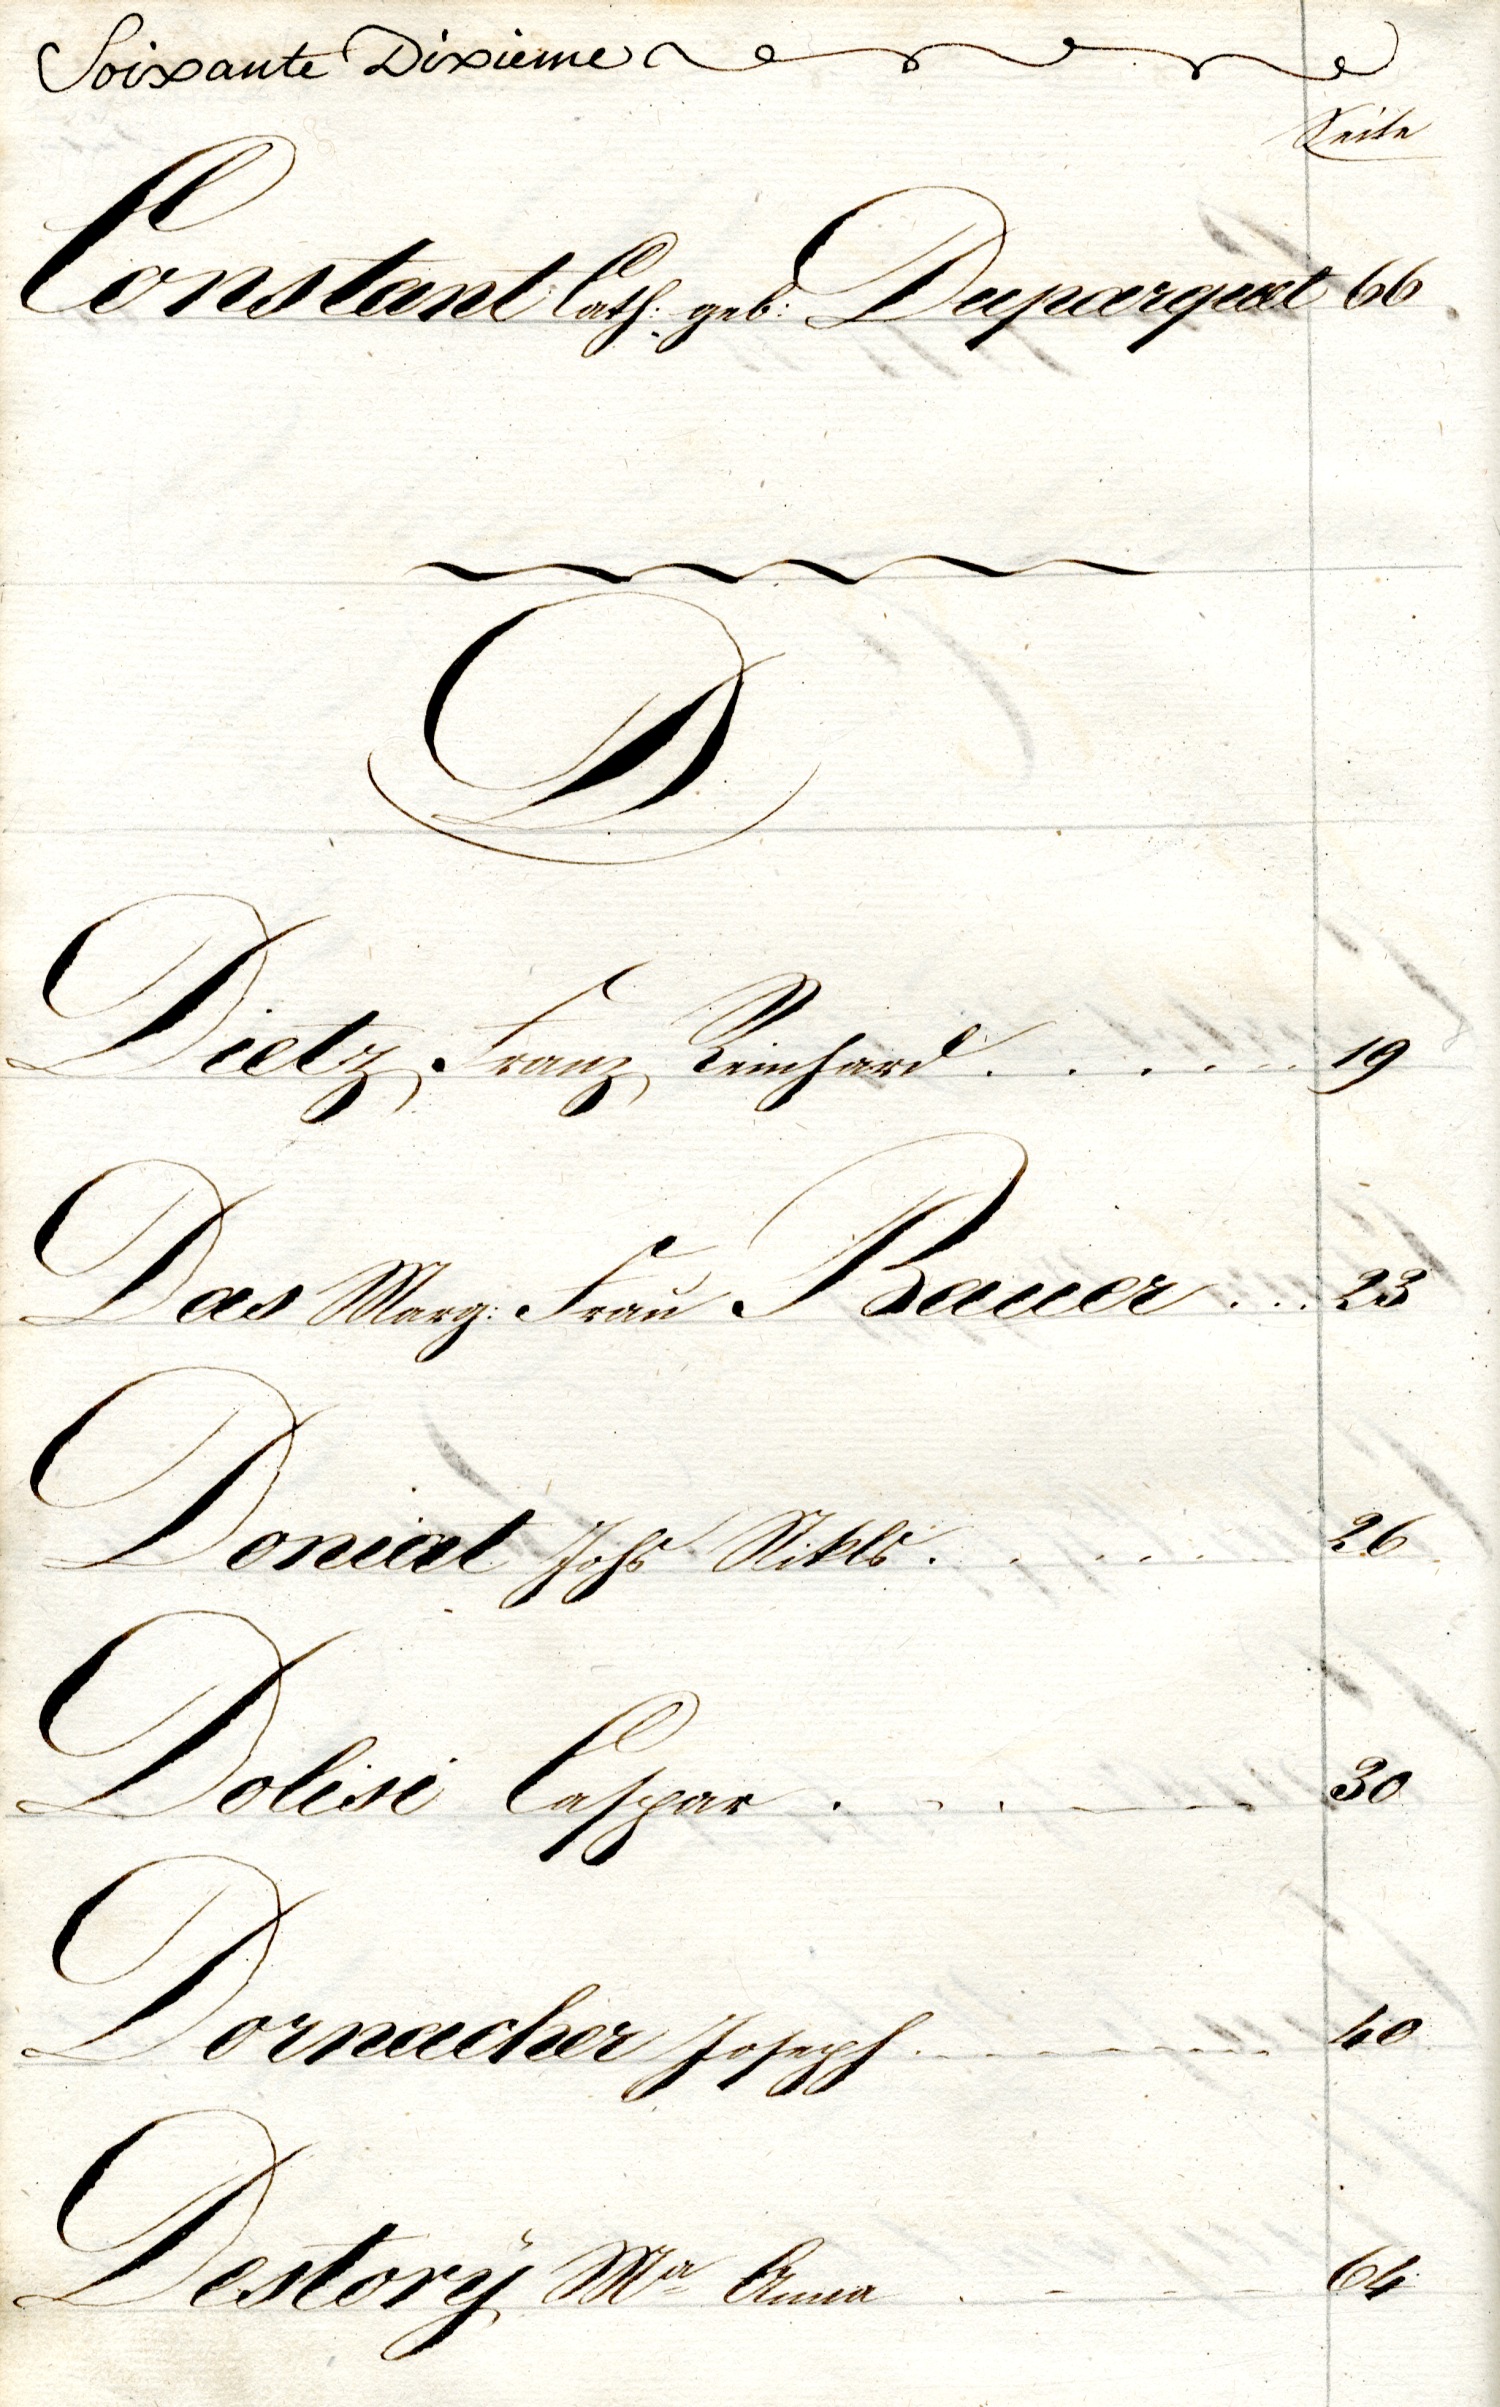 Soixante Dixieme
Seite
Constant Cath: geb: Duparquat 66
D
Dietz Franz Reinhard . . . . . . 19
Das Marg: Frau Bauer . . . 23
Doniat Johs Nikls . . . . . . 26
Dolisi Caspar . . . . . . 30
Dornacher Joseph . . . . . . 40
Destorÿ Ma Anna . . . . . 64